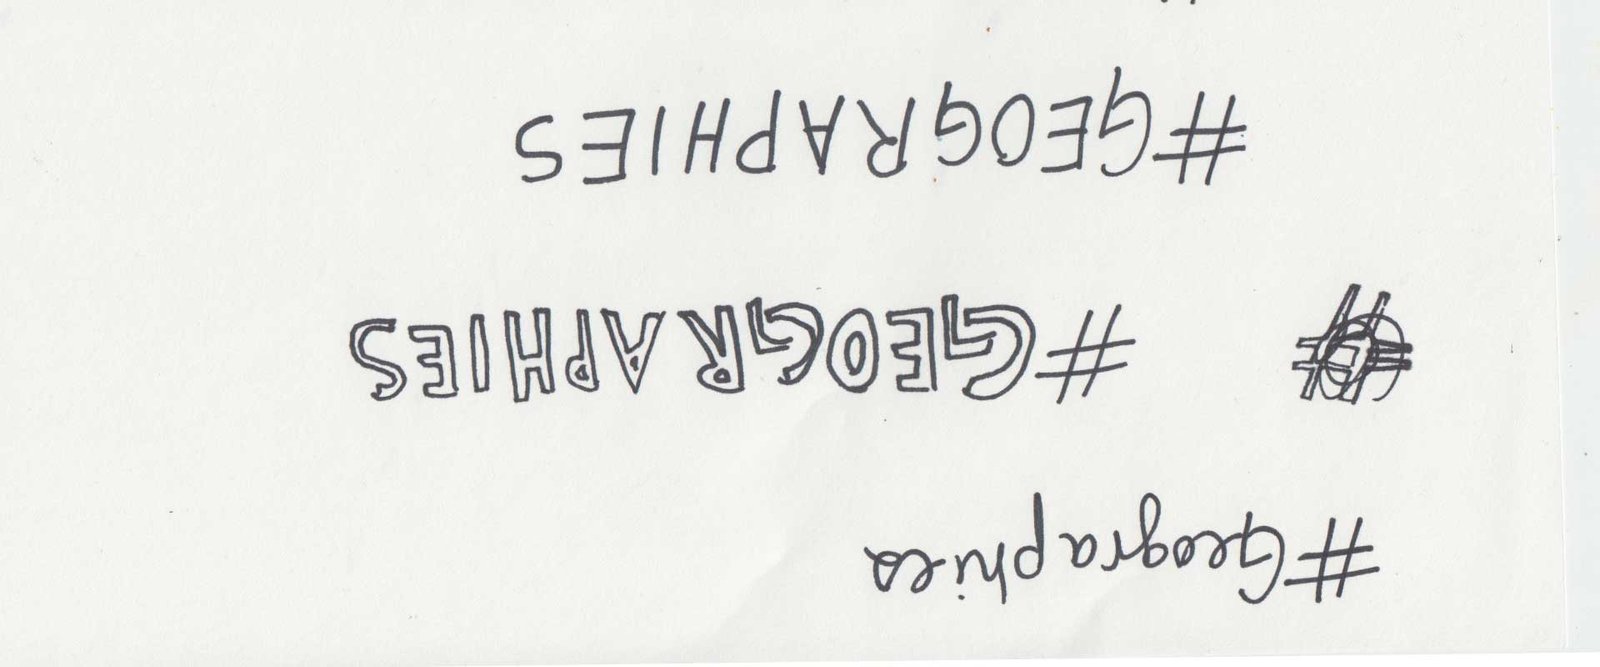 #Geographies
#GEOGRAPHIES
#GEOGRAPHIES